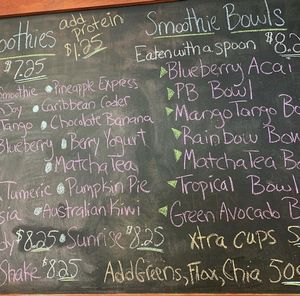 oothies add protein $1.25
$7.25
moothie • Pineapple Express
Joy • Caribbean Cooler
Tango • Chocolate Banana
Blueberry • Berry Yogurt
• Matcha Tea
Tumeric • Pumpkin Pie
sia • Australian Kiwi
dy $8.25 • Sunrise $8.25
Shake $8.25
Smoothie Bowls
Eaten with a spoon $8.2
Blueberry Acai
PB Bowl
Mango Tango Bo
Rainbow Bow
Matcha Tea B
Tropical Bowl
Green Avocado B
xtra cups 5
Add Greens, Flax, Chia 50¢